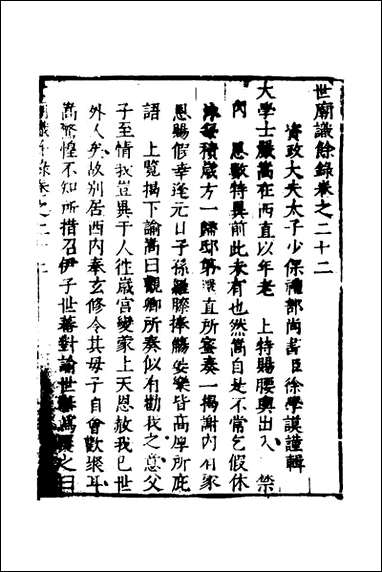 世廟識餘錄卷之二十二
資政大夫太子少保禮部尚書臣徐學謨謹輯
大學士嚴嵩在西直以年老 上特賜腰輿出入 禁
內 恩數特異前此未有也然嵩自是不常乞假休
沐每積歲方一歸邸第 直所密奏一揭謝內有家
恩賜假幸逢元日子孫羅膝捧觴妥樂皆 高厚所庇
語 上覽揭下諭嵩曰觀卿所奏似有勸我之意父
子至情我豈異于人徃歲宮變蒙上天恩赦我已世
外人矣故別居西內奉玄修今其母子自會歡聚耳
嵩驚惶不知所措召伊子世蕃對諭世蕃為 之曰